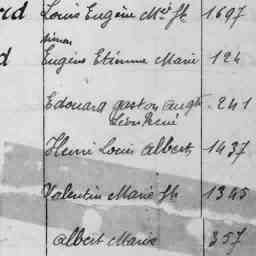 rd Louis Eugène Mie Jh 1697
Simon
d Eugène Etienne Marie 124
Edouard gaston Augte 241
Léon René
Henri Louis Albert 1437
Valentin Marie Jh 1345
Albert Marie 357